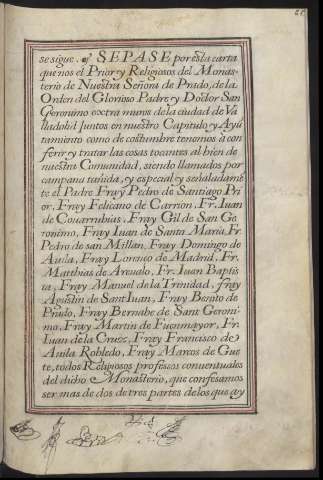 se sigue. SEPASE por esta carta
que nos el Prior, y Religiosos del Monas-
terio de Nuestra Señora de Prado, de la
Orden del Glorioso Padre, y Doctor San
Geronimo extra muros de la ciudad de Va
lladolid Juntos en nuestro Capitulo y Ayũ
tamiento como de costumbre tenemos à con
ferir y tratar las cosas tocantes al bien de
nuestra Comunidad, siendo llamados por
campana tañida, y especial y señaladamẽ
te el Padre Fray Pedro de Santiago Pri
or, Frey Feliciano de Carrion, Fr. Iuan
de Couarrubias, Fray Gil de San Ge
ronimo, Fray Iuan de Santa Maria, Fr.
Pedro de san Millan, Fray Domingo de
Auila, Fray Lorenço de Madrid, Fr.
Matthias de Areualo, Fr. Iuan Baptis
ta, Fray Manuel de la Trinidad, fray
Agustin de Sant Iuan, Fray Benito de
Prado, Fray Bernabe de Sant Geroni
mo, Fray Martin de Fuenmayor, Fr.
Iuan de la Cruz, Frey Francisco de
Auila Robledo, Fray Marcos de Gue
te, todos Religiosos professos conuentuales
del dicho Monasterio, que confesamos
ser mas de dos de tres partes de los que ay